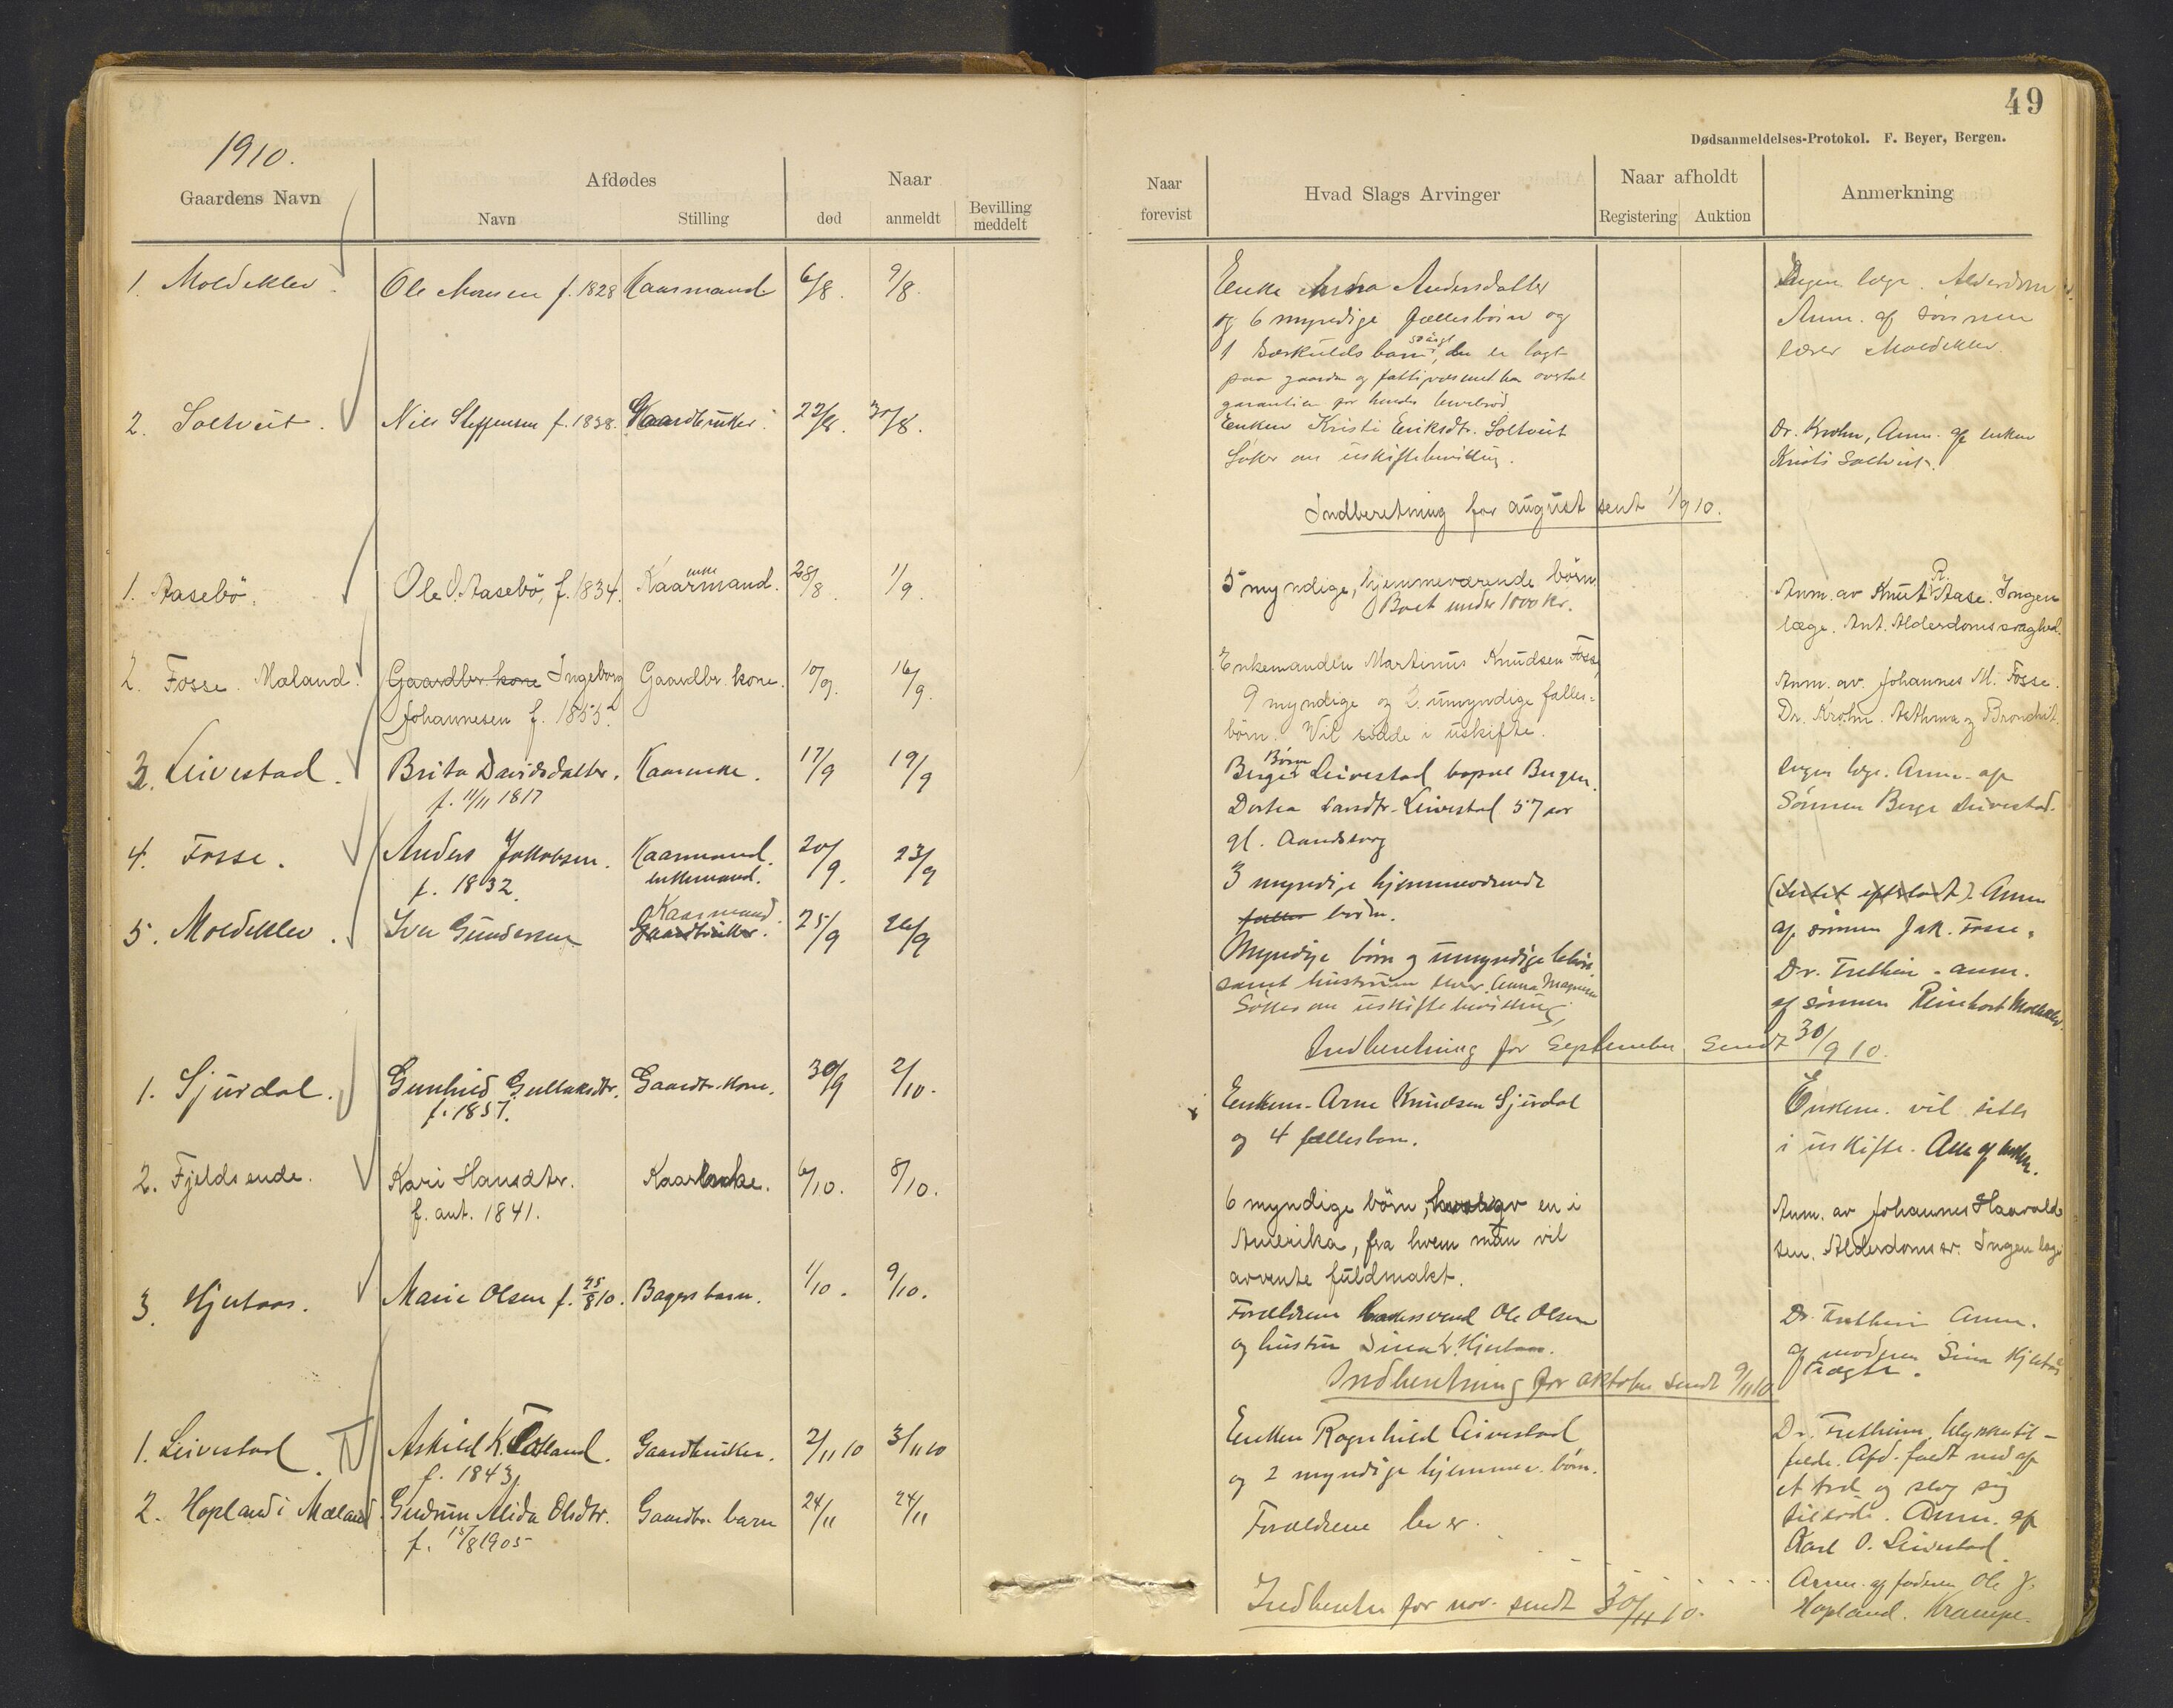 49
Dødsanmeldelses-Protokol. F. Beyer, Bergen.
1910.
Gaardens Navn
Afdødes
Navn
Stilling
Naar
død
anmeldt
Bevilling
meddelt
Naar
forevist
Hvad Slags Arvinger
Naar afholdt
Registering
Auktion
Anmerkning
1. Moldeklev
Ole Monsen f. 1828
Kaarmand
6/8.
9/8.
Enke Andersdatter
og 6 myndige fællesbörn og
1 der er lagt
paa gaarden og
garantien for hendes levebrød
Ingen læge. Alderdom
Anm. af sönnen
lærer Moldeklev.
2. Soltveit.
Nils Steffensen f. 1838.
Gaardbruker.
22/8.
30/8.
Enken Kristi Eriksdtr. Soltveit
Söker om uskiftebevilling.
Dr. Krohn, Anm. af enken
Kristi Soltveit.
Indberetning for august sent 1/9 10.
1. Aasebö.
Ole O. Aasebö, f. 1834.
enke
Kaarmand.
28/8.
1/9.
5 myndige, hjemmeværende börn
Boet under 1000 Kr.
Anm. av Knut R. Aase. Ingen
læge. Ant. Alderdomssvaghed.
2. Fosse. Mæland.
Gaardbr kone Ingeborg
Johannesen f. 1855.
Gaardbr. kone.
10/9.
16/9.
Enkemanden Martinus Knudsen Fosse,
9 myndige og 2 umyndige fælles-
börn. Vil sidde i uskifte.
Anm. av Johannes M. Fosse.
Dr. Krohn. Asthma og Bronchit.
3. Leivestad.
Brita Davidsdatter.
f. 11/11 1817
Kaarenke.
17/9
19/9
Börn
Berge Leivestad bopæl Bergen.
Dortea Larsdtr. Leivestad 57 aar
gl. Aandssvag
Ingen læge. Anm. af
Sönnen Berge Leivestad.
4. Fosse.
Anders Jakobsen.
f. 1832.
Kaarmand.
enkemand.
20/9.
23/9
3 myndige hjemmeværende
fælles börn.
Anm
af sönnen Jak. Fosse.
5. Moldeklev.
Iver Gundersen
Kaarmand.
Gaardbruker.
25/9
26/9
Myndige börn og umyndige
samt hustruen Anna Magnusen
Söker om uskiftebevilling,
Dr. Tretheim. anm.
af sönnen Reinhart Moldeklev.
Indberetning for September sendt 30/9 10.
1. Sjurdal.
Gunhild Gullaksdtr.
f. 1857.
Gaardbr. kone.
30/9
2/10.
Enkem. Arne Knudsen Sjurdal
og 4 fællesbarn.
Enkem. vil sitte
i uskifte. Anm af enkem.
2. Fjeldsende.
Kari Hansdtr.
f. ant. 1841.
Kaarenke.
6/10.
8/10.
6 myndige börn, hvorav en i
Amerika, fra hvem man vil
avvente fuldmakt.
Anm. av Johannes Haavald-
sen. Alderdomssv. Ingen læge
3. Hjertaas.
Marie Olsen f. 25/8 10.
Bagers barn.
1/10.
9/10.
Forældrene Ole Olsen
og hustru Sina Hjertaas.
Dr. Tretheim Anm.
af moderen Sina Hjertaas
Indberetning for oktober sendt 9/11 10
1. Leivestad.
Askild K. Totland.
f. 1843
Gaardbruker.
2/11 10
3/11 10
Enken Ragnhild Leivestad
og 2 myndige hjemmev. börn.
Dr. Tretheim. Ulykkestil-
fælde. Afd. faldt ned af
et træ og slog sig
tildöde. Anm. af
Karl O. Leivestad.
2. Hopland i Mæland
Gudrun Alida Olsdtr.
f. 15/8 1905
Gaardbr. barn
24/11
24/11
Forældrene lever.
Anm. af faderen Ole J.
Hopland. Krampe.
Indberetn for nov. sendt 30/11 10.